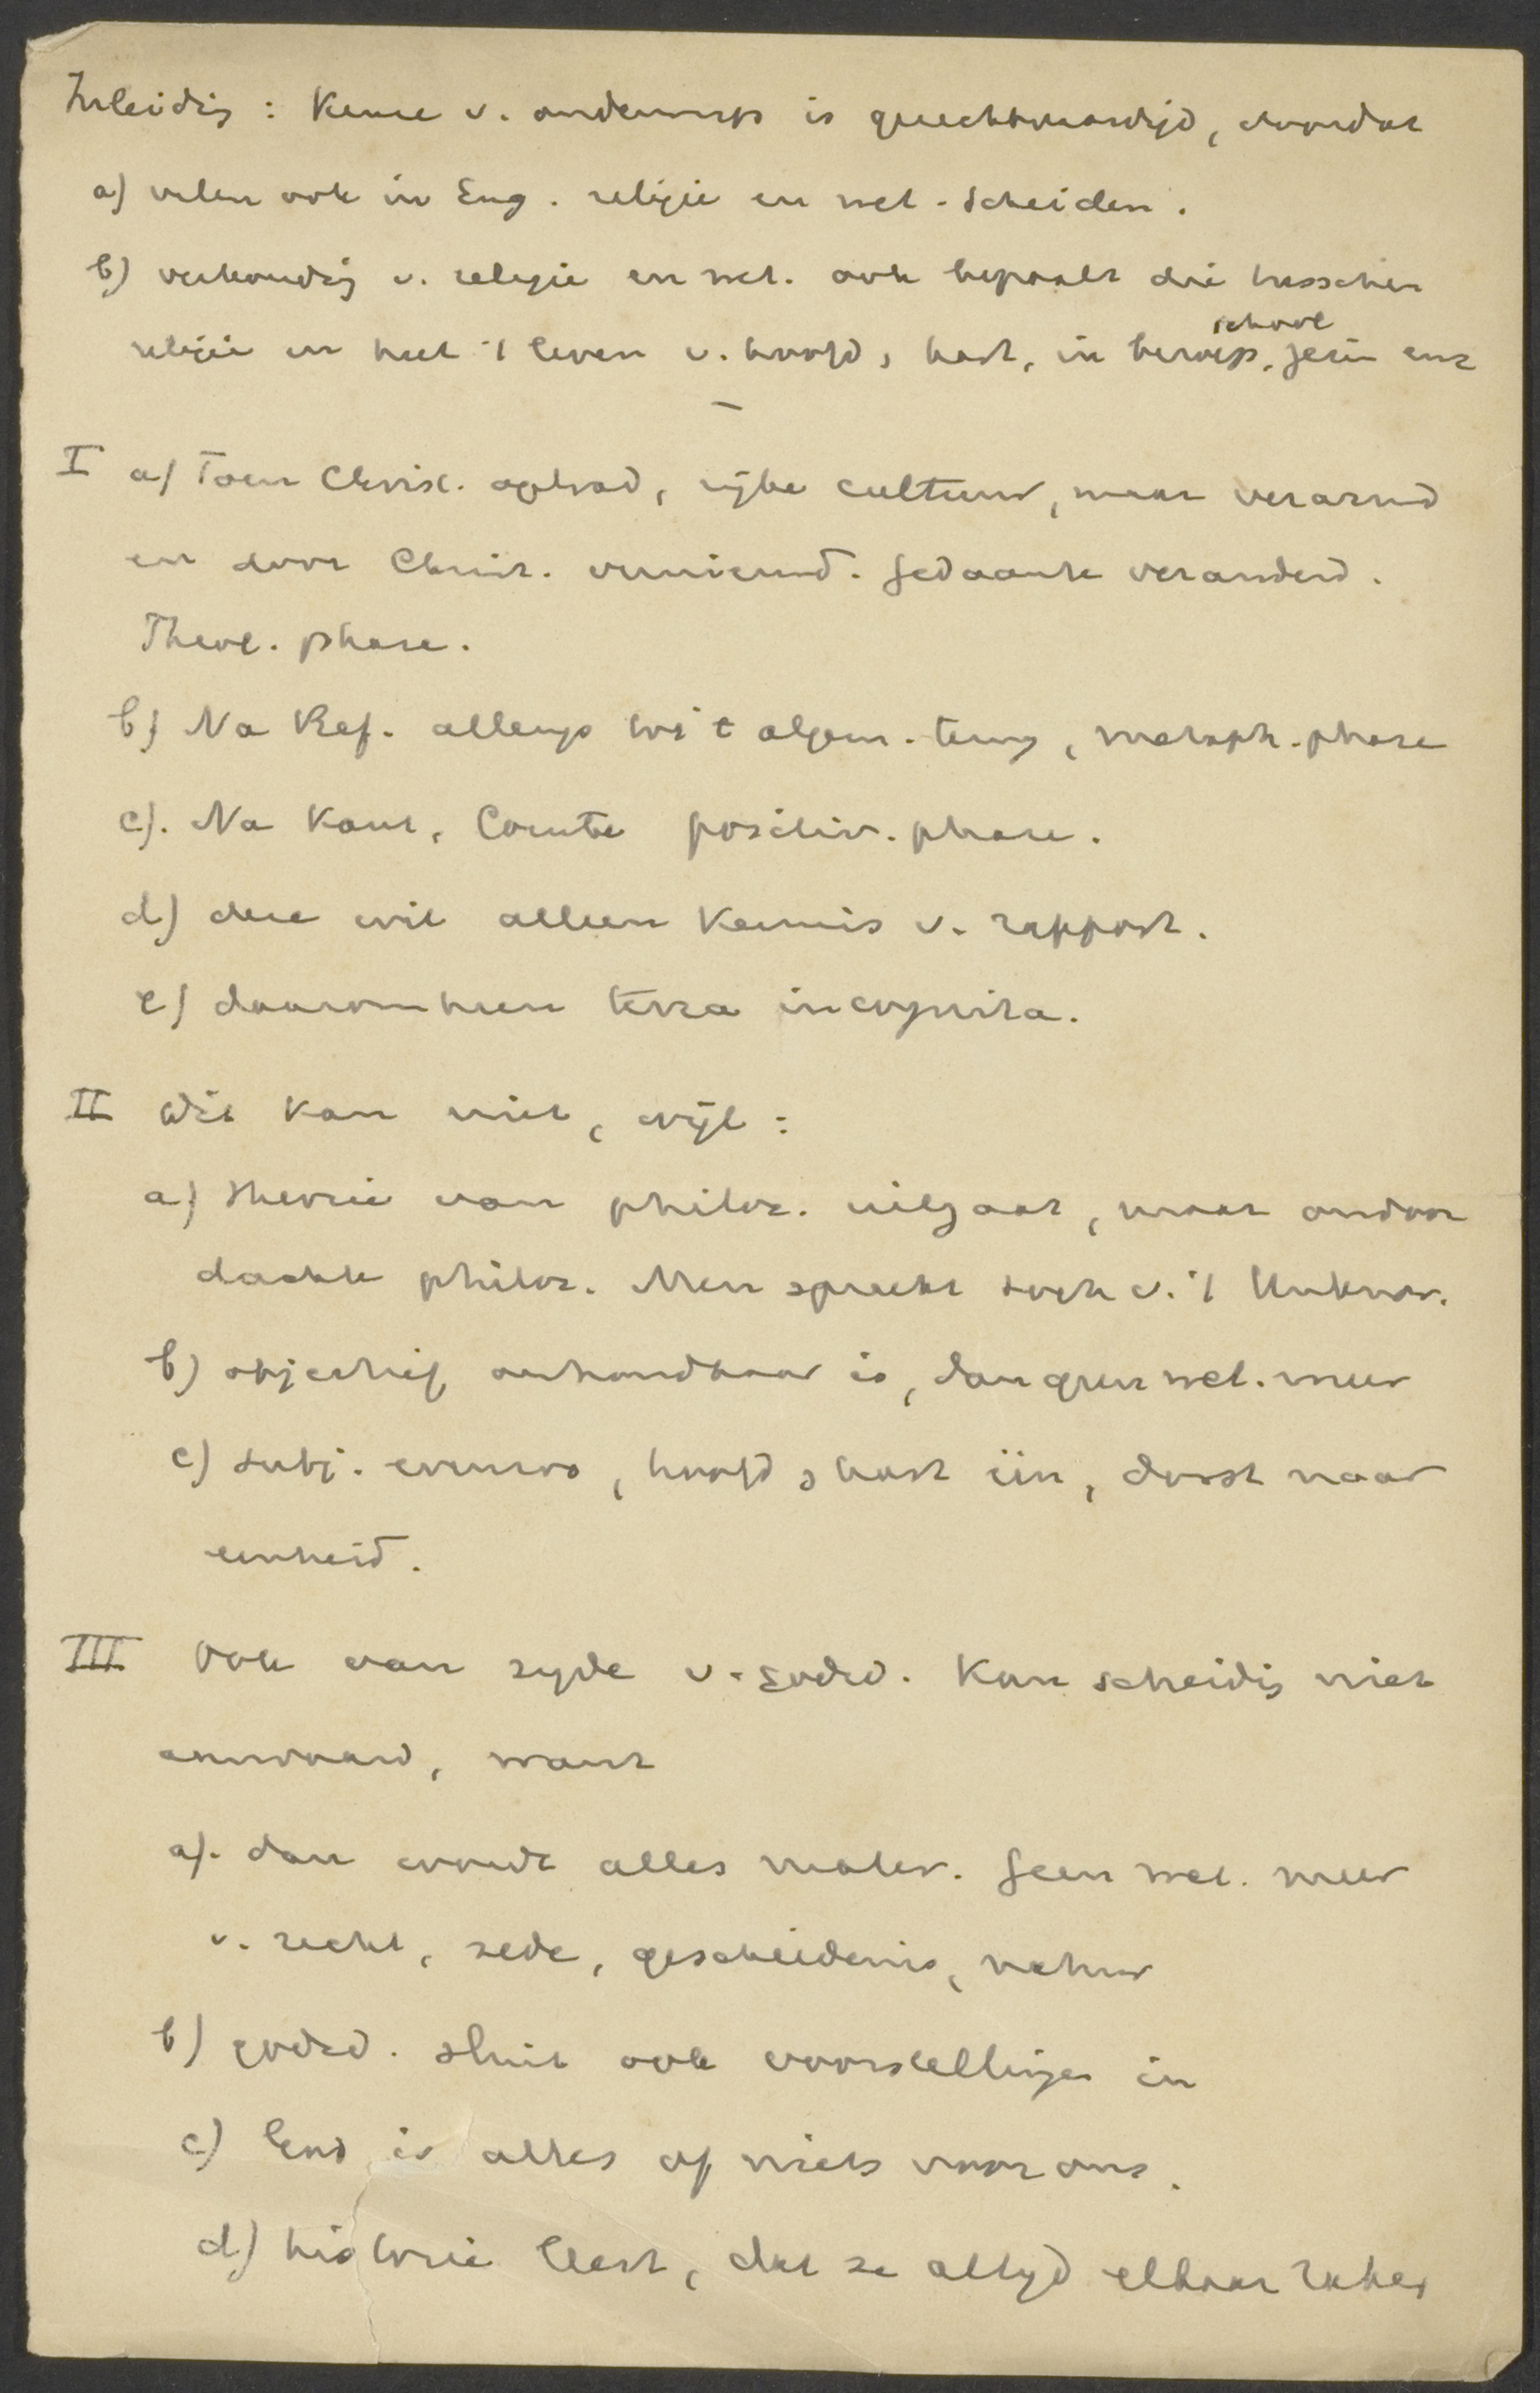 Inleidig : Keuze v. onderwerp is gerechtvaardigd, doordat
a) velen ook in Eng. religie en wet. scheiden.
b) verhoudig v. religie en wet. ook bepaalt die tusschen
religie en heel 't leven v. hoofd, hart, in beroep, school gezin enz
I a) Toen Christ. optrad, rijke cultuur, maar verarmd
en door Christ. vernieuwd. Gedaante veranderd.
Theol. phase.
b) Na Ref. allengs los v. theol., metaph. phase
c). Na Kant, Comte positiv. phase.
d) deze wil alleen kennis v. rapport.
e) daaromheen terra incognita.
II Dit kan niet, wijl :
a) theorie van philos. uitgaat, maar ondoor
dachte philos. Men spreekt toch v. 't Unknow.
b) objectief onhoudbaar is, dan geen wet. meer
c) subj. evenzoo, hoofd, hart één, dorst naar
eenheid.
III Ook van zijde v. godsd. kan scheidig niet
aanvaard, want
a). dan wordt alles mater. Geen wet. meer
v. recht, zede, geschiedenis, natuur
b) godsd. sluit ook voorstellingen in
c) God is alles of niets voor ons.
d) historie leert, dat ze altijd elkaar raken